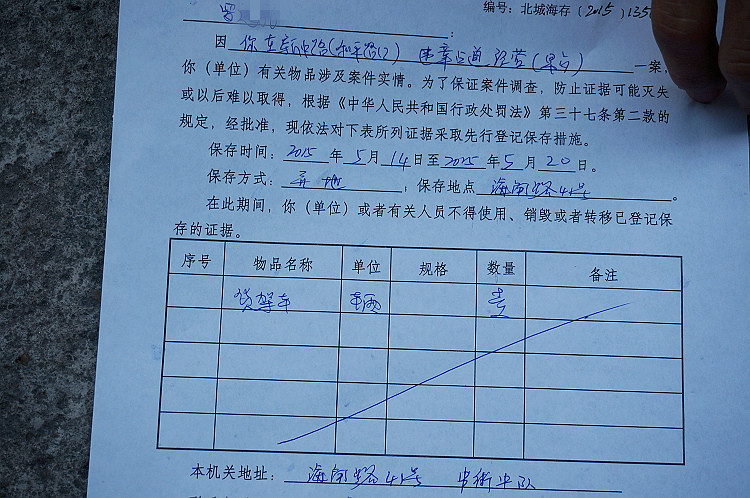 编号：北城海存（2015）135
罗
：
因 你在新中路(和平路口) 违章占道经营(果分) 一案，
你（单位）有关物品涉及案件实情。为了保证案件调查，防止证据可能灭失
或以后难以取得，根据《中华人民共和国行政处罚法》第三十七条第二款的
规定，经批准，现依法对下表所列证据采取先行登记保存措施。
保存时间：2015 年 5 月 14 日至 2015 年 5 月 20 日。
保存方式：异地，保存地点 海 路41号。
在此期间，你（单位）或者有关人员不得使用、销毁或者转移已登记保
存的证据。
序号 物品名称 单位 规格 数量 备注
货架车 辆 壹
本机关地址：海 路41号 中街中队